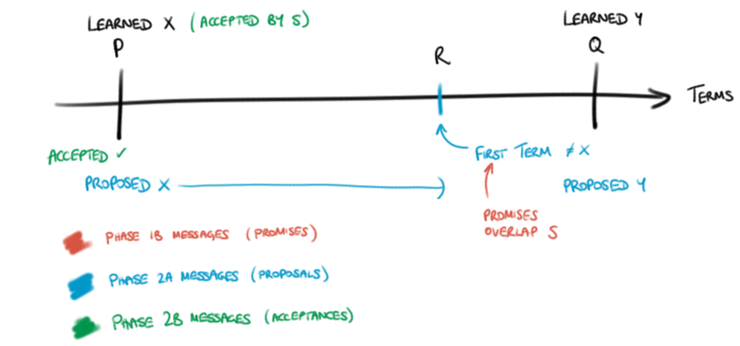 LEARNED X (ACCEPTED BY S)
P
LEARNED Y
Q
R
TERMS
ACCEPTED ✓
FIRST TERM ≠ X
PROPOSED X
PROPOSED Y
PROMISES
OVERLAP S
PHASE 1B MESSAGES (PROMISES)
PHASE 2A MESSAGES (PROPOSALS)
PHASE 2B MESSAGES (ACCEPTANCES)